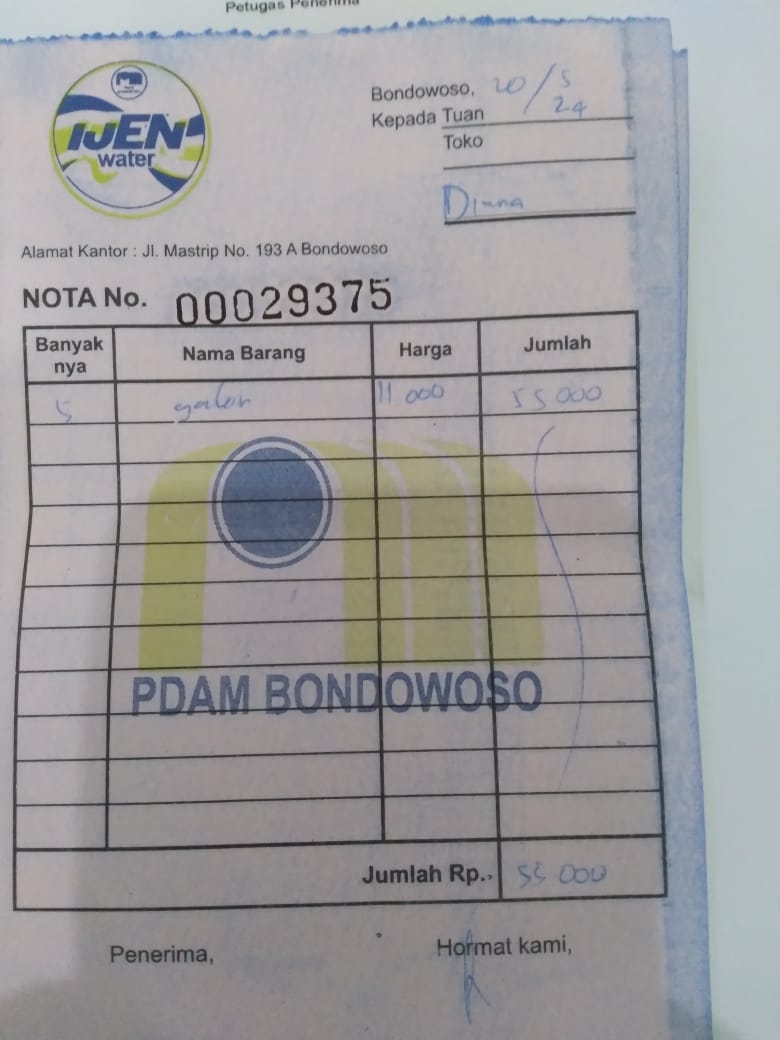 Petugas Penerima
IJEN
water
Bondowoso, 20/5 24
Kepada Tuan
Toko
Diana
Alamat Kantor : Jl. Mastrip No. 193 A Bondowoso
NOTA No. 00029375
Banyak nya Nama Barang Harga Jumlah
5 galon 11 000 55 000
PDAM BONDOWOSO
Jumlah Rp. 55 000
Penerima, Hormat kami,